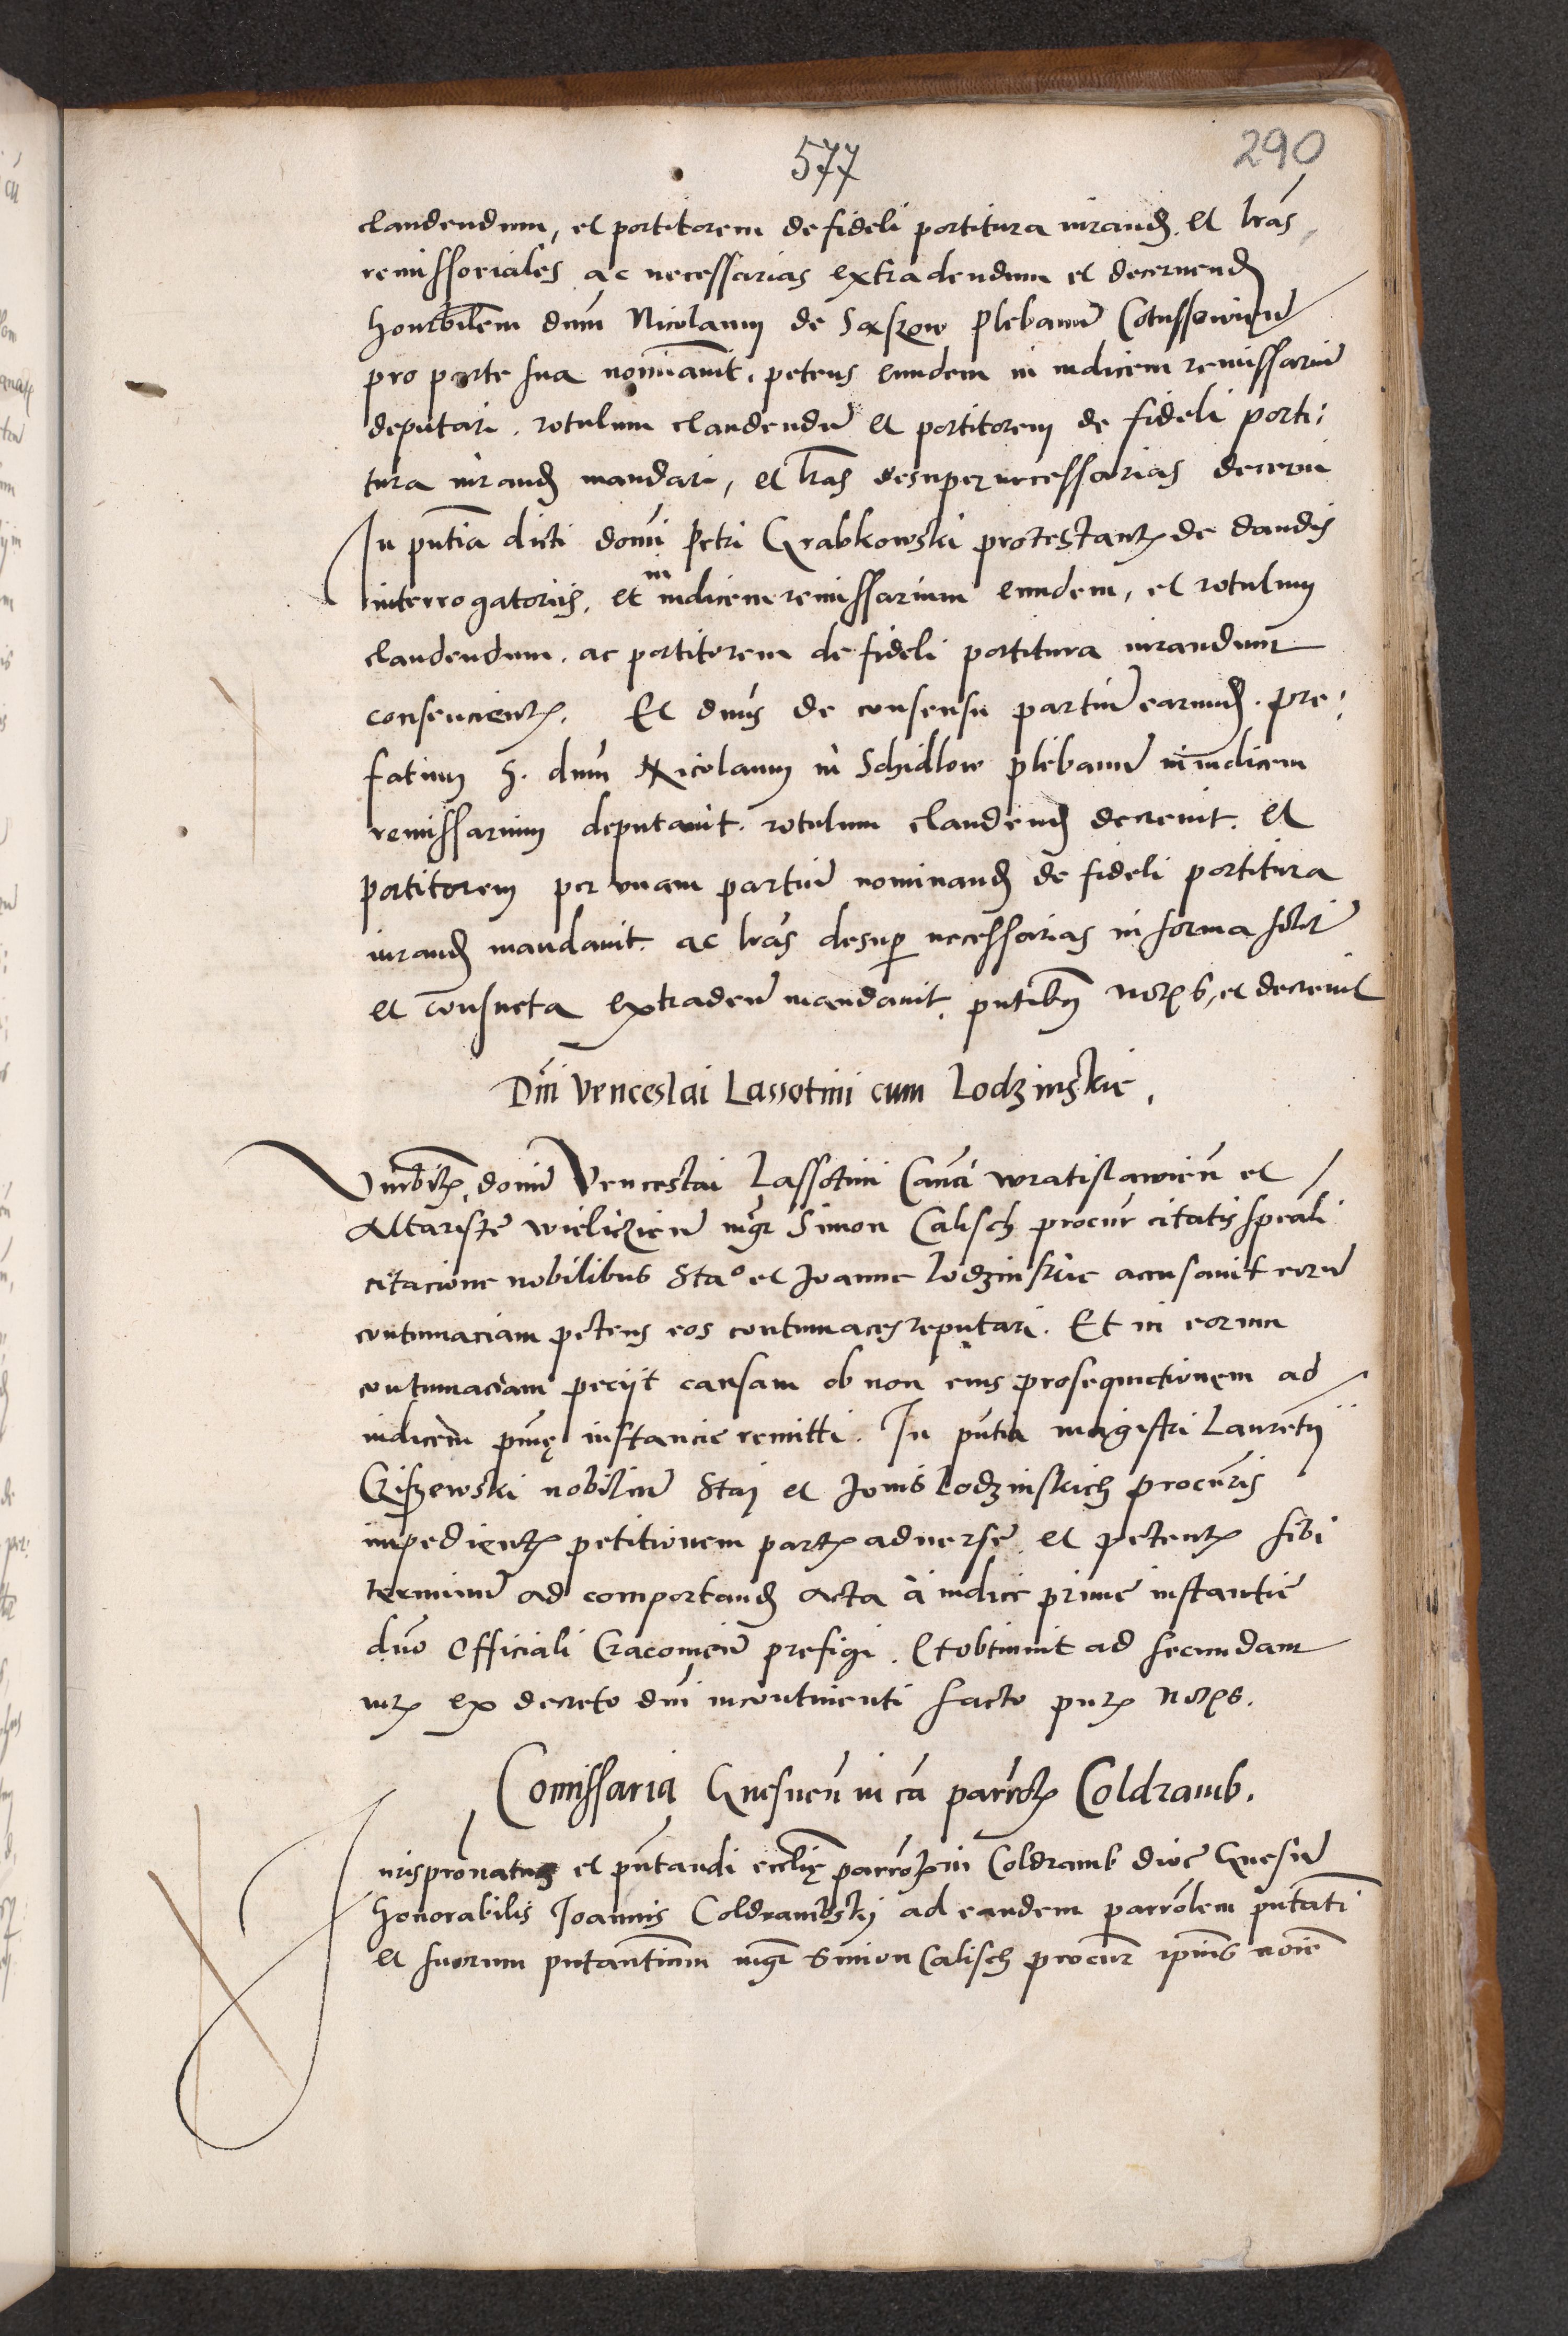 577
290
claudendum, et portitorem de fideli portitura iurand. et lras
remissoriales ac necessarias extradendum et decernend
honrbilem dnm Nicolaum de Saskow plebanu Cotussowien
pro parte sua nominavit, petens eundem in iudicem remissariu
deputari. rotulum claudendu et portitorem de fideli porti:
tura iurand mandari, et lras desuper necessarias decerni
In pntia dicti domi Petri Grabkowski protestantis de dandis
interrogatoriis, et in iudicem remissarium eundem, et rotulum
claudendum. ac portitorem de fideli portitura iurandum
consencientis. Et dnus de consensu partiu earund. pre:
fatum h. dnm Nicolaum in Schidlow plebanu in iudicem
remissarium deputavit. rotulum claudend decrevit. et
portitorem per unam partiu nominand de fideli portitura
iurand mandavit. ac lras desup necessarias in forma solit
et consueta extraden mandavit, pntibus notis, et decrevit
Dni Venceslai Lassotini cum Lodzinskie.
Vnrbilis domi Venceslai Lassotini Canci wratislawien et
Altariste wielicien mgr Simon Calisch procur citatis speali
citacione nobilibus Stao et Joanne Lodzinskie accusavit eoru
contumaciam petens eos contumaces reputari. Et in eorum
contumaciam peciit causam ob non eius prosequutionem ad
iudicem prime instancie remitti. In pntia magistri Laurentii
Criszewski nobiliu Stai et Jonis Lodzinskich procuris
impedientis petitionem partis adverse et petentis sibi
terminu ad comportand acta a iudice prime instantie
dno Officiali Cracovien prefigi. Et obtinuit ad secundam
iuris ex decreto dni incontinenti facto pntis notis.
Comissaria Gnesnen in ca parrotis Coldramb.
Jurispronatus et pntandi ecclie parrotis in Coldramb dioc Gnesn
honorabilis Joannis Coldrambsky ad eandem parrolem pntati
et suorum pntantium mgr Simon Calisch procur ipius noie